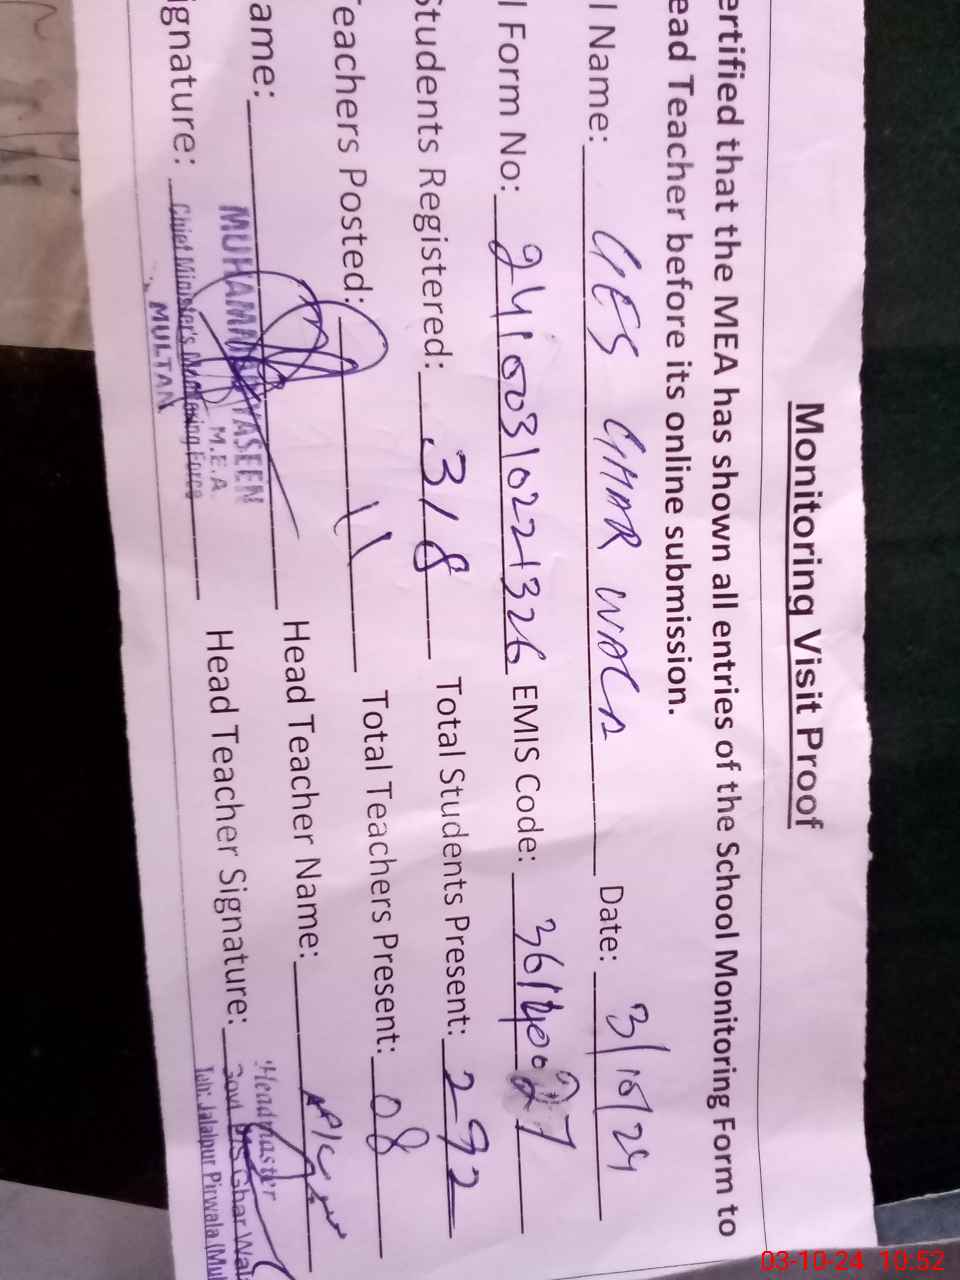 Monitoring Visit Proof
ertified that the MEA has shown all entries of the School Monitoring Form to
ead Teacher before its online submission.
l Name: GES GHAR WALA Date: 3/10/24
l Form No: 24100310221326 EMIS Code: 36140027
Students Registered: 318 Total Students Present: 292
Teachers Posted: 11 Total Teachers Present: 08
ame: Head Teacher Name:
MUHAMMAD YASEEN
M.E.A
ignature: Head Teacher Signature:
Chief Minister's Monitoring Force
MULTAN
Headmaster
Govt Ghar Wal
Teh: Jalalpur Pirwala (Mul
03-10-24 10:52